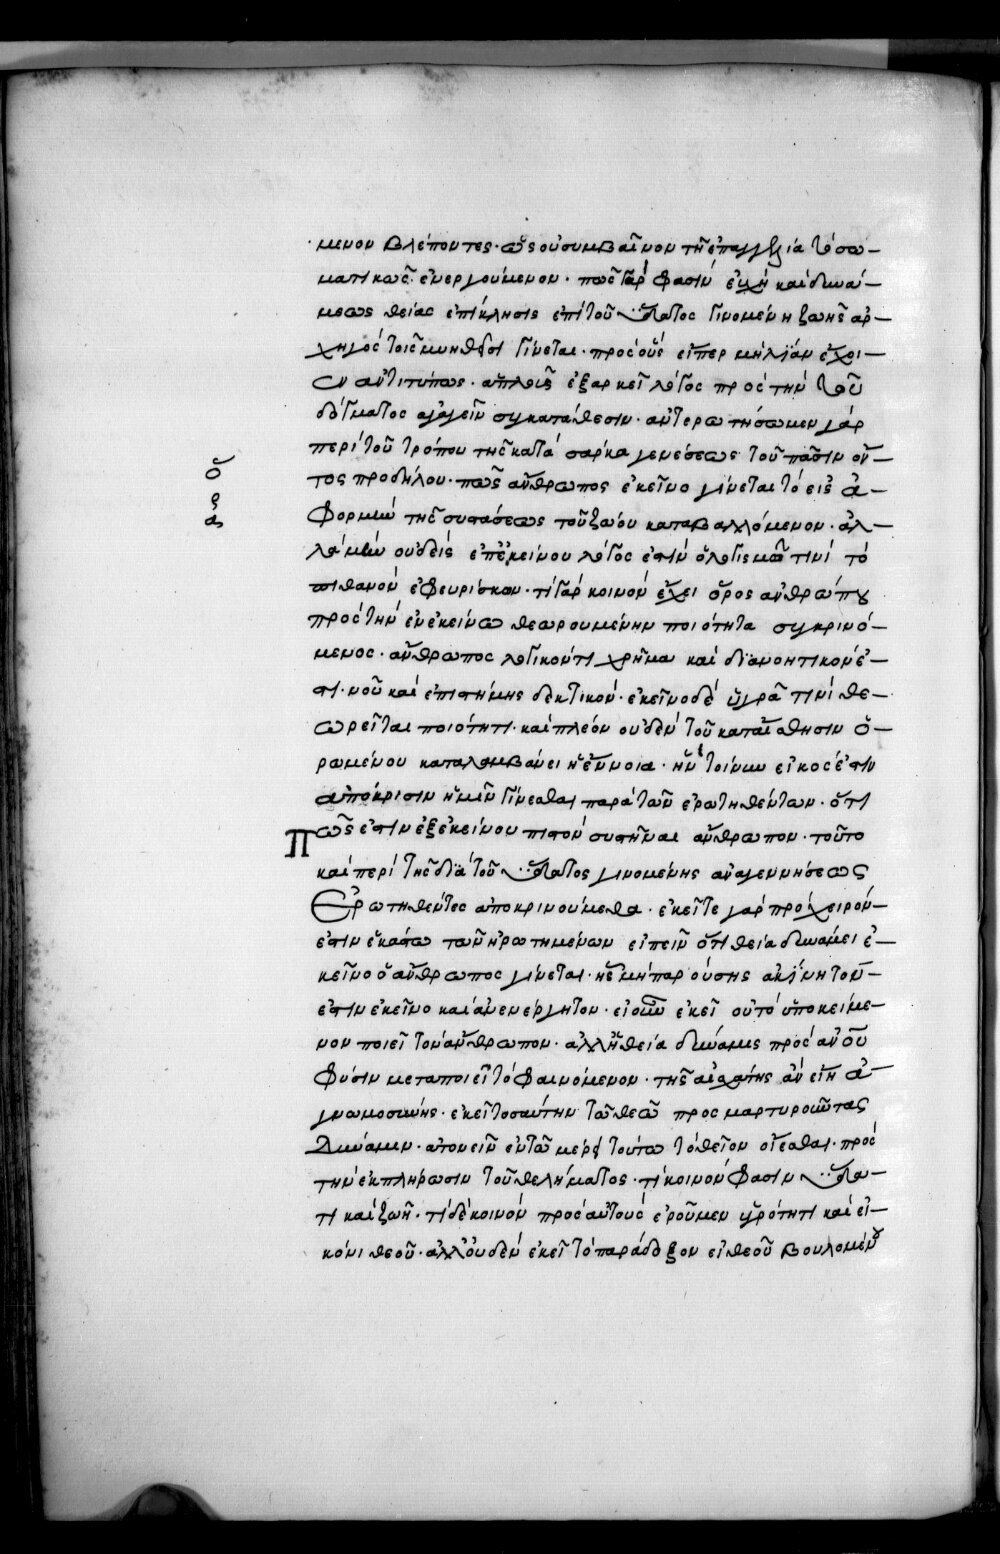 μενον βλέποντες· ὡς οὐ συμβαῖνον τῆ ἐπαγγελία τὸ σω–
ματικῶς ἐνεργούμενον· πῶς γὰρ φασὶν εὐχὴ καὶ δυνά–
μεως θείας ἐπίκλησις ἐπὶ τοῦ ὕδατος γινομένη ζωῆς ἀρ–
χηγὸς τοῖς μυηθεῖσι γίνεται· πρὸς οὓς εἴπερ μὴ λίαν ἔχοι–
εν ἀντιτύπως· ἁπλοῦς ἐξαρκεῖ λόγος πρὸς τὴν τοῦ
δόγματος ἀγαγεῖν συγκατάθεσιν· ἀντερωτήσωμεν γὰρ
περὶ τοῦ τρόπου τῆς κατὰ σάρκα γενέσεως τοῦ πᾶσιν ὄν–
τος προδήλου· πῶς ἄνθρωπος ἐκεῖνο γίνεται τὸ εἰς ἀ–
φορμὴν τῆς συστάσεως τοῦ ζώου καταβαλλόμενον· ἀλ–
λὰ μὴν οὐδεὶς ἐπ' ἐκείνου λόγος ἐστὶν ὁ λογισμῶ τινὶ τὸ
πιθανὸν ἐφευρίσκων· τί γὰρ κοινὸν ἔχει ὅρος ἀνθρώπου
πρὸς τὴν ἐν ἐκείνω θεωρουμένην ποιότητα συγκρινό–
μενος· ἄνθρωπος λογικόν τι χρῆμα καὶ διανοητικόν ἐ–
στι· νοῦ καὶ ἐπιστήμης δεκτικόν· ἐκεῖνο δὲ ὑγρᾶ τινὶ θε–
ωρεῖται ποιότητι· καὶ πλέον οὐδὲν τοῦ κατ' αἴσθησιν ὁ–
ρωμένου καταλαμβάνει ἡ ἔννοια· ἣν τοίνυν εἰκός ἐστιν
ἀπόκρισιν ἡμῖν γίνεσθαι παρὰ τῶν ἐρωτηθέντων· ὅτι
Πῶς ἐστιν ἐξ ἐκείνου πιστὸν συστῆναι ἄνθρωπον· τοῦτο
καὶ περὶ τῆς διὰ τοῦ ὕδατος γινομένης ἀναγεννήσεως
Ἐρωτηθέντες ἀποκρινούμεθα· ἐκεῖ τε γὰρ πρόχειρόν–
ἐστιν ἑκάστω τῶν ἠρωτημένων εἰπεῖν ὅτι θεία δυνάμει ἐ–
κεῖνο ὁ ἄνθρωπος γίνεται· ἧς μὴ παρούσης ἀκίνητόν–
ἐστιν ἐκεῖνο καὶ ἀνενέργητον· εἰ οὖν ἐκεῖ οὐ τὸ ὑποκείμε–
νον ποιεῖ τὸν ἄνθρωπον· ἀλλ' ἡ θεία δύναμις πρὸς ἀνοῦ
φύσιν μεταποιεῖ τὸ φαινόμενον· τῆς ἐσχάτης ἂν εἴη ἀ–
γνωμοσύνης· ἐκεῖ τοσαύτην τῶ θεῶ προσμαρτυροῦντας
Δύναμιν· ἀτονεῖν ἐν τῶ μέρει τούτω τὸ θεῖον οἴεσθαι· πρὸς
τὴν ἐκπλήρωσιν τοῦ θελήματος· τί κοινὸν φασὶν ὕδα–
τι καὶ ζωῆ· τί δὲ κοινὸν πρὸς αὐτοὺς ἐροῦμεν ὑγρότητι καὶ εἰ–
κόνι θεοῦ· ἀλλ' οὐδὲν ἐκεῖ τὸ παράδοξον εἰ θεοῦ βουλομένου